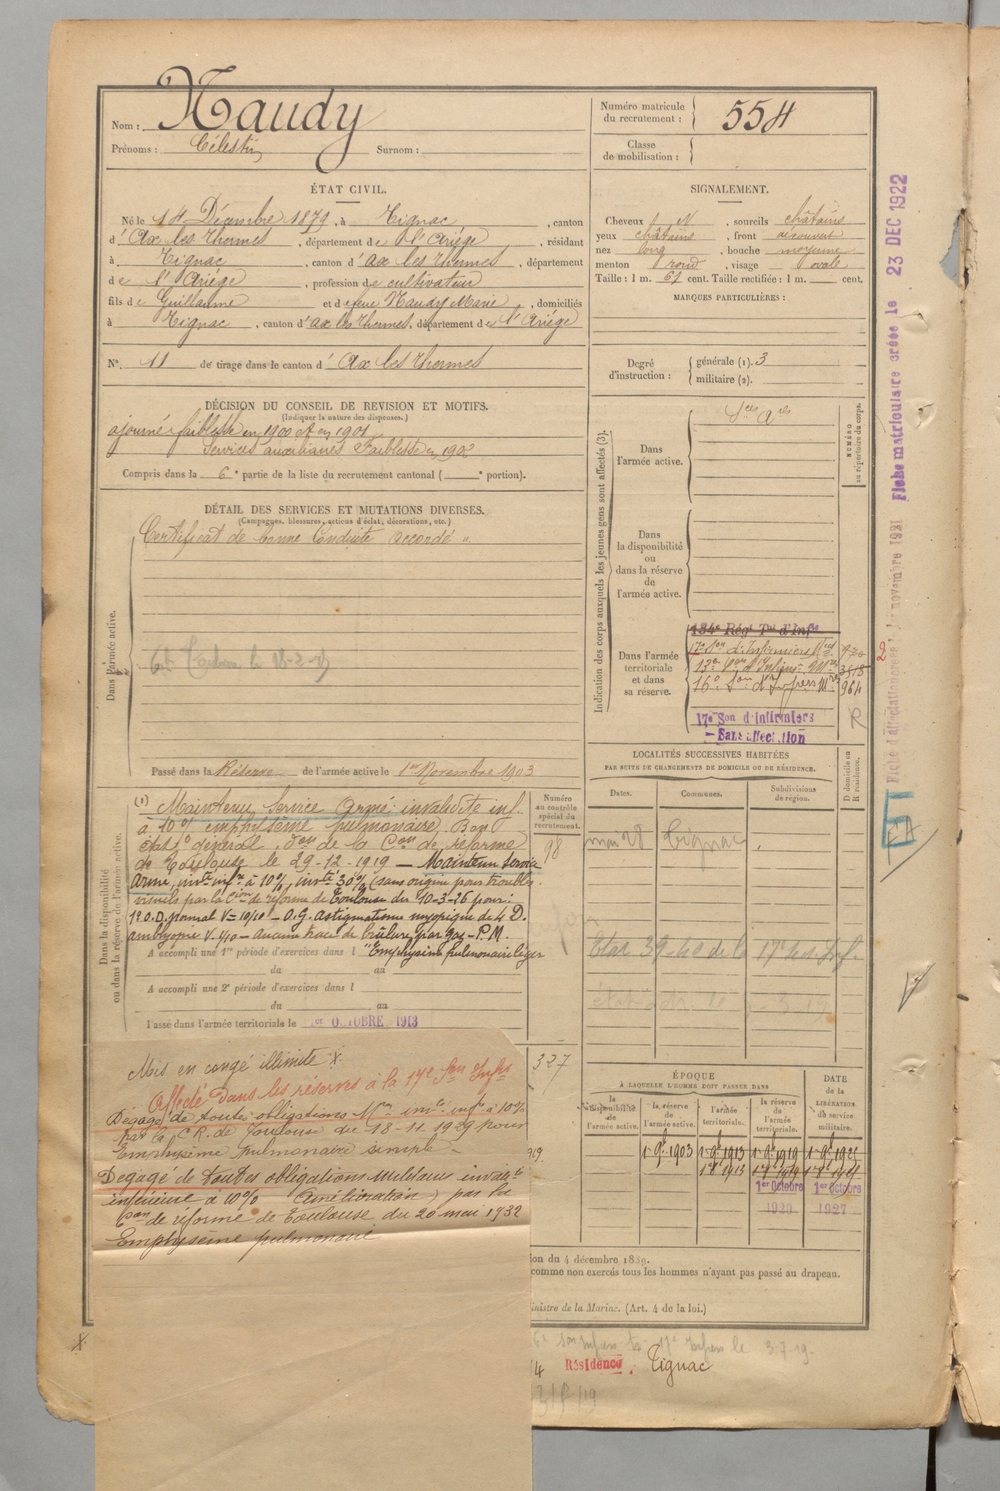 Nom : Naudy
Prénoms : Célestin Surnom :
Numéro matricule du recrutement : 554
Classe de mobilisation :
ÉTAT CIVIL.
Né le 14 Décembre 1879, à Tignac, canton
d'Ax les Thermes, département de l'Ariège, résidant
à Tignac, canton d'Ax les Thermes, département
de l'Ariège, profession de cultivateur
fils de Guillaume et de feue Naudy Marie, domiciliés
à Tignac, canton d'ax les Thermes, département de l'Ariège
N° 11 de tirage dans le canton d'Ax les Thermes
SIGNALEMENT.
Cheveux N, sourcils châtains
yeux châtains, front découvert
nez long, bouche moyenne
menton rond, visage ovale
Taille : 1 m. 61 cent. Taille rectifiée : 1 m. cent.
MARQUES PARTICULIÈRES :
Degré d'instruction : générale (1). 3
militaire (2).
DÉCISION DU CONSEIL DE REVISION ET MOTIFS.
(Indiquer la nature des dispenses.)
ajourné faiblesse en 1900 et en 1901
Services auxiliaires Faiblesse en 1902
Compris dans la 6e partie de la liste du recrutement cantonal ( e portion).
DÉTAIL DES SERVICES ET MUTATIONS DIVERSES.
(Campagnes, blessures, actions d'éclat, décorations, etc.)
Dans l'armée active.
Certificat de bonne Conduite accordé "
Passé dans la Réserve de l'armée active le 1er Novembre 1903
Indication des corps auxquels les jeunes gens sont affectés (3).
NUMÉRO au répertoire du corps.
Dans l'armée active.
Sces Ares
Dans la disponibilité ou dans la réserve de l'armée active.
Dans l'armée territoriale et dans sa réserve.
134e Régt Tal d'Infie
17e Son d'Infirmiers
16e Son d'Infirs Mres 964
17e Son d'Infirmiers
Sans affection
R
Dans la disponibilité ou dans la réserve de l'armée active.
(1) Maintenu Service Armé invalidité inf.
à 10% emphysème pulmonaire. Bon
état général, Don de la Con de réforme
de Toulouse le 29-12-1919 — Maintenu Service
Armé, invté infre à 10%, invté 30% (sans origine pour troubles
visuels par la Cion de réforme de Toulouse du 10-3-26 pour.
1° O.D. normal V=10/10 — O.G. astigmatisme myopique de 4 D.
amblyopie V. 1/10 — aucune trace de brûlure par gaz — P.M.
A accompli une 1re période d'exercices dans l "Emphysème pulmonaire léger
du au
A accompli une 2e période d'exercices dans l
du au
Passé dans l'armée territoriale le 1er OCTOBRE 1913
Numéro au contrôle spécial du recrutement.
98
327
LOCALITÉS SUCCESSIVES HABITÉES
PAR SUITE DE CHANGEMENTS DE DOMICILE OU DE RÉSIDENCE.
Dates. Communes. Subdivisions de région. D domicile ou R résidence.
mai 28 Tignac
Mis en congé illimité X
Affecté dans les réserves à la 17e Son Infrs
Dégagé de toutes obligations Mres invté infre à 10%
par la C.R. de Toulouse du 18-11 1929 pour
Emphysème pulmonaire simple —
Dégagé de toutes obligations militaires invalté
inférieure à 10% (Amélioration) par la
Con de réforme de Toulouse du 20 mai 1932
Emphysème pulmonaire
ÉPOQUE
À LAQUELLE L'HOMME DOIT PASSER DANS
DATE DE LA LIBÉRATION du service militaire.
la disponibilité de l'armée active.
la réserve de l'armée active.
l'armée territoriale.
la réserve de l'armée territoriale.
1 9bre 1903
1er Octobre 1er Octobre
1920 1927
ion du 4 décembre 1889.
comme non exercés tous les hommes n'ayant pas passé au drapeau.
inistre de la Marine. (Art. 4 de la loi.)
Résidence. Tignac
Fiche matriculaire créée le 23 DEC 1922
X